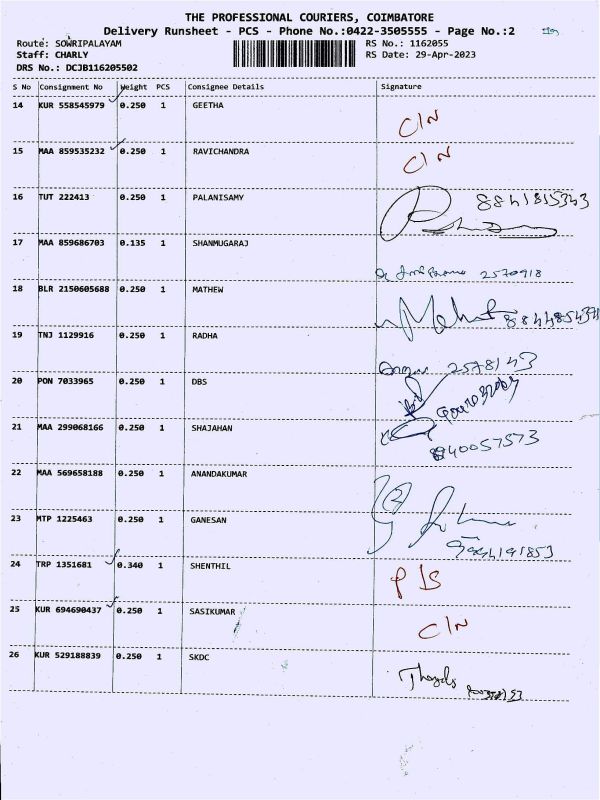 THE PROFESSIONAL COURIERS, COIMBATORE
Delivery Runsheet - PCS - Phone No.:0422-3505555 - Page No.:2
Route: SOWRIPALAYAM RS No.: 1162055
Staff: CHARLY RS Date: 29-Apr-2023
DRS No.: DCJB116205502
S No Consignment No Weight PCS Consignee Details Signature
14 KUR 558545979 0.250 1 GEETHA
C/N
15 MAA 859535232 0.250 1 RAVICHANDRA
C/N
16 TUT 222413 0.250 1 PALANISAMY
8841815343
17 MAA 859686703 0.135 1 SHANMUGARAJ
2570918
18 BLR 2150605688 0.250 1 MATHEW
19 TNJ 1129916 0.250 1 RADHA
2578143
20 PON 7033965 0.250 1 DBS
21 MAA 299068166 0.250 1 SHAJAHAN
940057573
22 MAA 569658188 0.250 1 ANANDAKUMAR
23 MTP 1225463 0.250 1 GANESAN
24 TRP 1351681 0.340 1 SHENTHIL
P/S
25 KUR 694690437 0.250 1 SASIKUMAR
C/N
26 KUR 529188839 0.250 1 SKDC